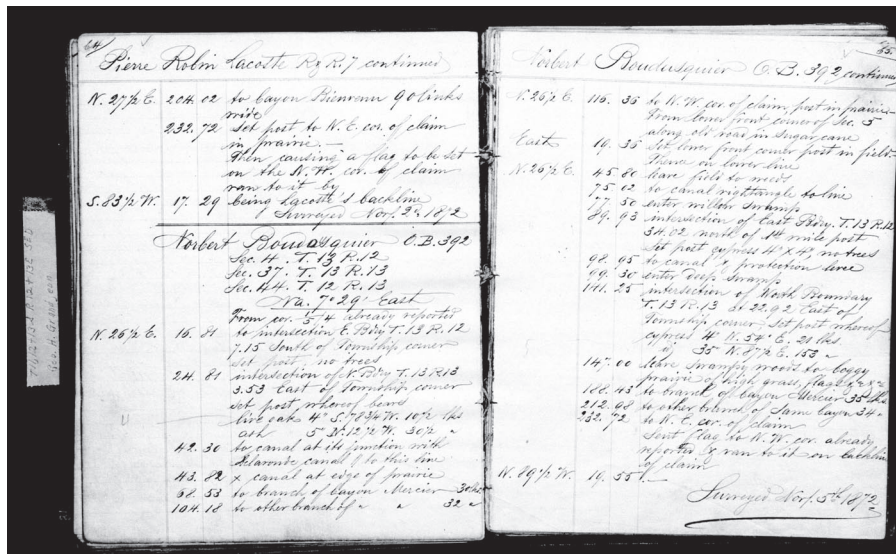 64
Pierre Robin Lacoste R&R. 7 continued
N. 27½ E. 204.02 to bayou Bienvenu 90 links
wide
232.72 Set post to N.E. cor. of claim
in prairie.—
Then causing a flag to be set
on the N.W. cor. of claim
ran to it by
S. 83½ W. 17.29 being Lacoste's backline
Surveyed Nov. 2d 1872
Norbert Boudusquier O.B. 392
Sec. 4. T. 13 R. 12
Sec. 37. T. 13 R. 13
Sec. 44. T. 12 R. 13
Va. 7° 29' East
From cor. already reported
N. 26½ E. 16.81 to intersection E. Bdry T. 13 R. 12
7.15 South of Township corner
Set post, no trees
24.81 intersection of N. Bdry T. 13 R. 13
3.53 East of Township corner
Set post, whereof bears
live oak 4" S. 78¾ W. 10½ lks
ash 5" N. 12½ W. 30½ "
42.30 to canal at its junction with
canal & to this line
43.82 x canal at edge of prairie
68.53 to branch of bayou Mercier 30 lks
104.18 to other branch of " " 32 "
65
Norbert Boudusquier O.B. 392 continued
N. 26½ E. 116.35 to N.W. cor. of claim post in prairie
From lower front corner of Sec. 5
along old road in sugar cane
East 19.35 Set lower front corner post in field
Thence on lower line
N. 26½ E. 45.80 leave field to woods
75.02 to canal right angle to line
77.50 enter willow swamp
89.93 intersection of East Bdry. T. 13 R. 12
34.02 north of 1st mile post
Set post cypress 4" x 4", no trees
98.95 to canal & protection levee
99.30 enter deep swamp
141.25 intersection of North Boundary
T. 13 R. 13 at 22.92 East of
Township corner, Set post whereof
cypress 4" N. 54° E. 21 lks
" 35" N. 87½ E. 153 "
147.00 leave swampy woods to boggy
prairie of high grass, flags &c &c
188.43 to branch of bayou Mercier 35 lks
212.68 to other branch of same bayou 34 "
232.72 to N.E. cor. of claim
Sent flag to N.W. cor. already
reported & ran to it on backline
of claim
N. 89½ W. 19.55
Surveyed Nov. 5th 1872